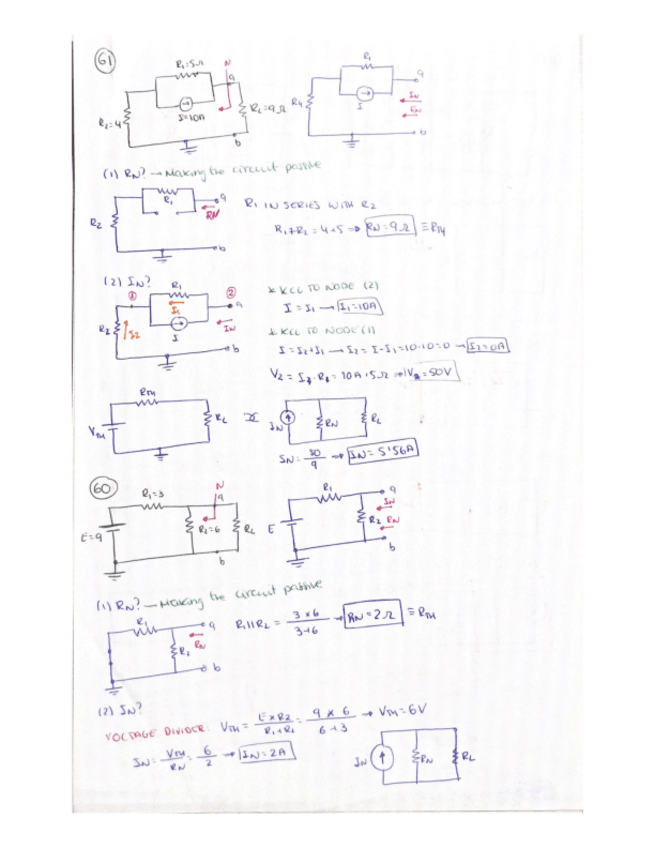 61
R₁=5Ω
N
a
I=10A
R₂=4
RL=9Ω
b
R₁
a
I
R4
IN
b
(1) RN? → Making the circuit passive
R₁
a
RN
R2
b
R₁ IN SERIES WITH R2
R₁+R2 = 4+5 ⇒ RN=9Ω ≡ RTH
(2) IN?
① R₁ ②
a
I₁
I
IN
R2
I2
b
* KCL TO NODE (2)
I = I₁ → I₁=10A
* KCL TO NODE (1)
I = I2+I₁ → I2 = I-I₁ =10-10=0 → I2=0A
= 10A·5Ω ⇒ =50V
RTH
VTH
RL
IN
RN
RL
→ IN = 5'56A
60
R₁=3
N
a
E=9
R2=6
RL
b
R₁
a
IN
E
R2
RN
b
(1) RN? → Making the circuit passive
R₁
a
RN
R2
b
R₁||R2 = 3×6 / 3+6 → RN=2Ω ≡ RTH
(2) IN?
VOLTAGE DIVIDER: VTH = E×R2 / R₁+R2 = 9×6 / 6+3 → VTH=6V
IN = VTH / RN = 6 / 2 → IN=2A
IN
RN
RL